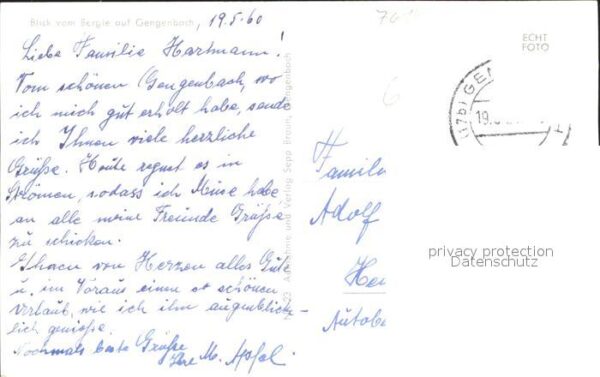 Blick vom Bergle auf Gengenbach, 19.5.60
Liebe Familie Hartmann!
Vom schönen Gengenbach, wo
ich mich gut erholt habe, sende
ich Ihnen viele herzliche
Grüße. Heute regnet es in
Strömen, sodass ich Muse habe,
an alle meine Freunde Grüße
zu schicken.
Ihnen von Herzen alles Gute
u. im Voraus einen so schönen
Urlaub, wie ich ihn augenblick-
lich genieße.
Nochmals beste Grüße
Ihre M. Apfel.
Aufnahme und Verlag Sepp Braun, Gengenbach
ECHT
FOTO
(17b) GEN
19.
Famili
Adolf
privacy protection
Datenschutz
He
Autob